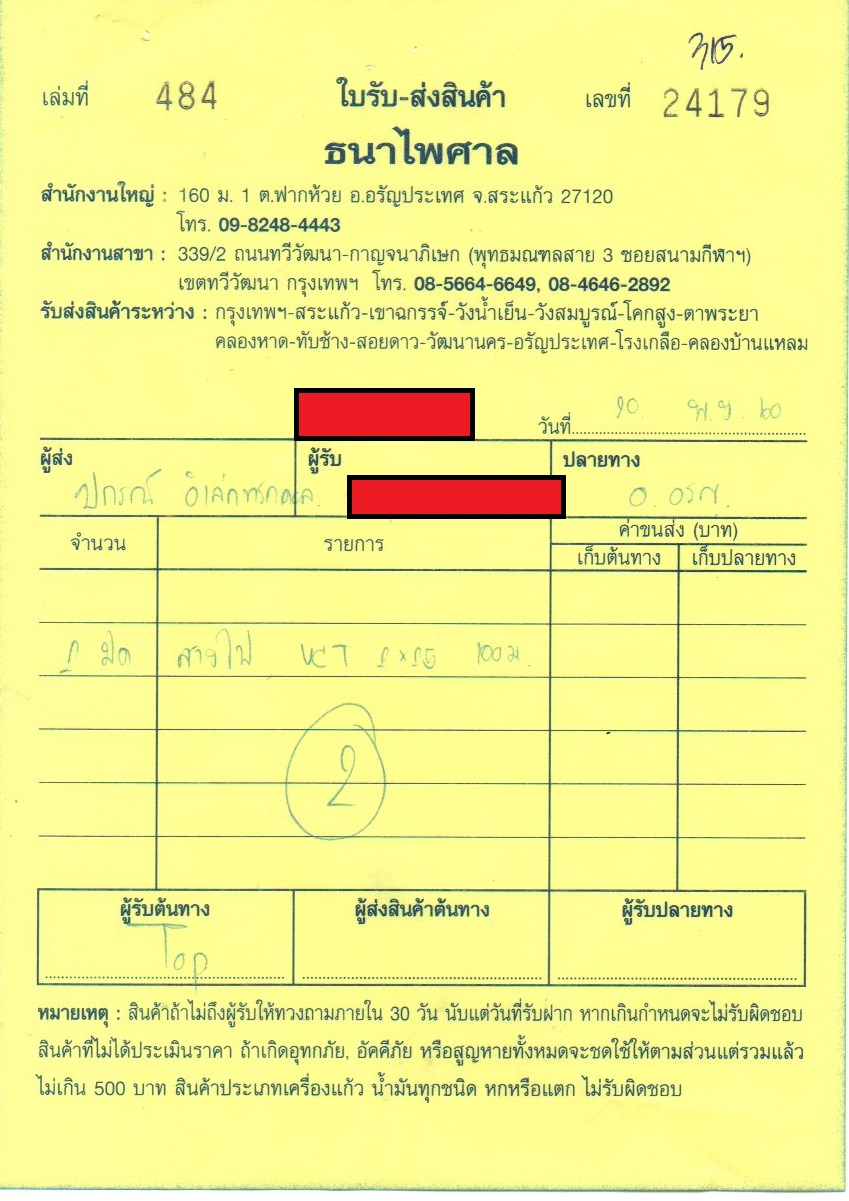 315.
เล่มที่ 484 ใบรับ-ส่งสินค้า เลขที่ 24179
ธนาไพศาล
สำนักงานใหญ่ : 160 ม. 1 ต.ฟากห้วย อ.อรัญประเทศ จ.สระแก้ว 27120
โทร. 09-8248-4443
สำนักงานสาขา : 339/2 ถนนทวีวัฒนา-กาญจนาภิเษก (พุทธมณฑลสาย 3 ซอยสนามกีฬาฯ)
เขตทวีวัฒนา กรุงเทพฯ โทร. 08-5664-6649, 08-4646-2892
รับส่งสินค้าระหว่าง : กรุงเทพฯ-สระแก้ว-เขาฉกรรจ์-วังน้ำเย็น-วังสมบูรณ์-โคกสูง-ตาพระยา
คลองหาด-ทับช้าง-สอยดาว-วัฒนานคร-อรัญประเทศ-โรงเกลือ-คลองบ้านแหลม
วันที่ 20 พ.ย. 60
ผู้ส่ง ผู้รับ ปลายทาง
ปกรณ์ อ.อรัญ.
จำนวน รายการ ค่าขนส่ง (บาท)
เก็บต้นทาง เก็บปลายทาง
มัด สายไฟ VCT 100 ม.
2
ผู้รับต้นทาง ผู้ส่งสินค้าต้นทาง ผู้รับปลายทาง
Top
หมายเหตุ : สินค้าถ้าไม่ถึงผู้รับให้ทวงถามภายใน 30 วัน นับแต่วันที่รับฝาก หากเกินกำหนดจะไม่รับผิดชอบ
สินค้าที่ไม่ได้ประเมินราคา ถ้าเกิดอุทกภัย, อัคคีภัย หรือสูญหายทั้งหมดจะชดใช้ให้ตามส่วนแต่รวมแล้ว
ไม่เกิน 500 บาท สินค้าประเภทเครื่องแก้ว น้ำมันทุกชนิด หกหรือแตก ไม่รับผิดชอบ